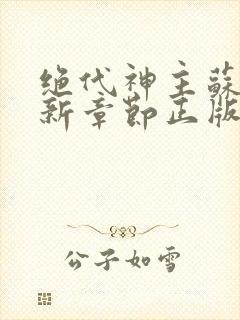 绝代神主蘇
新章節正版
公子如雪